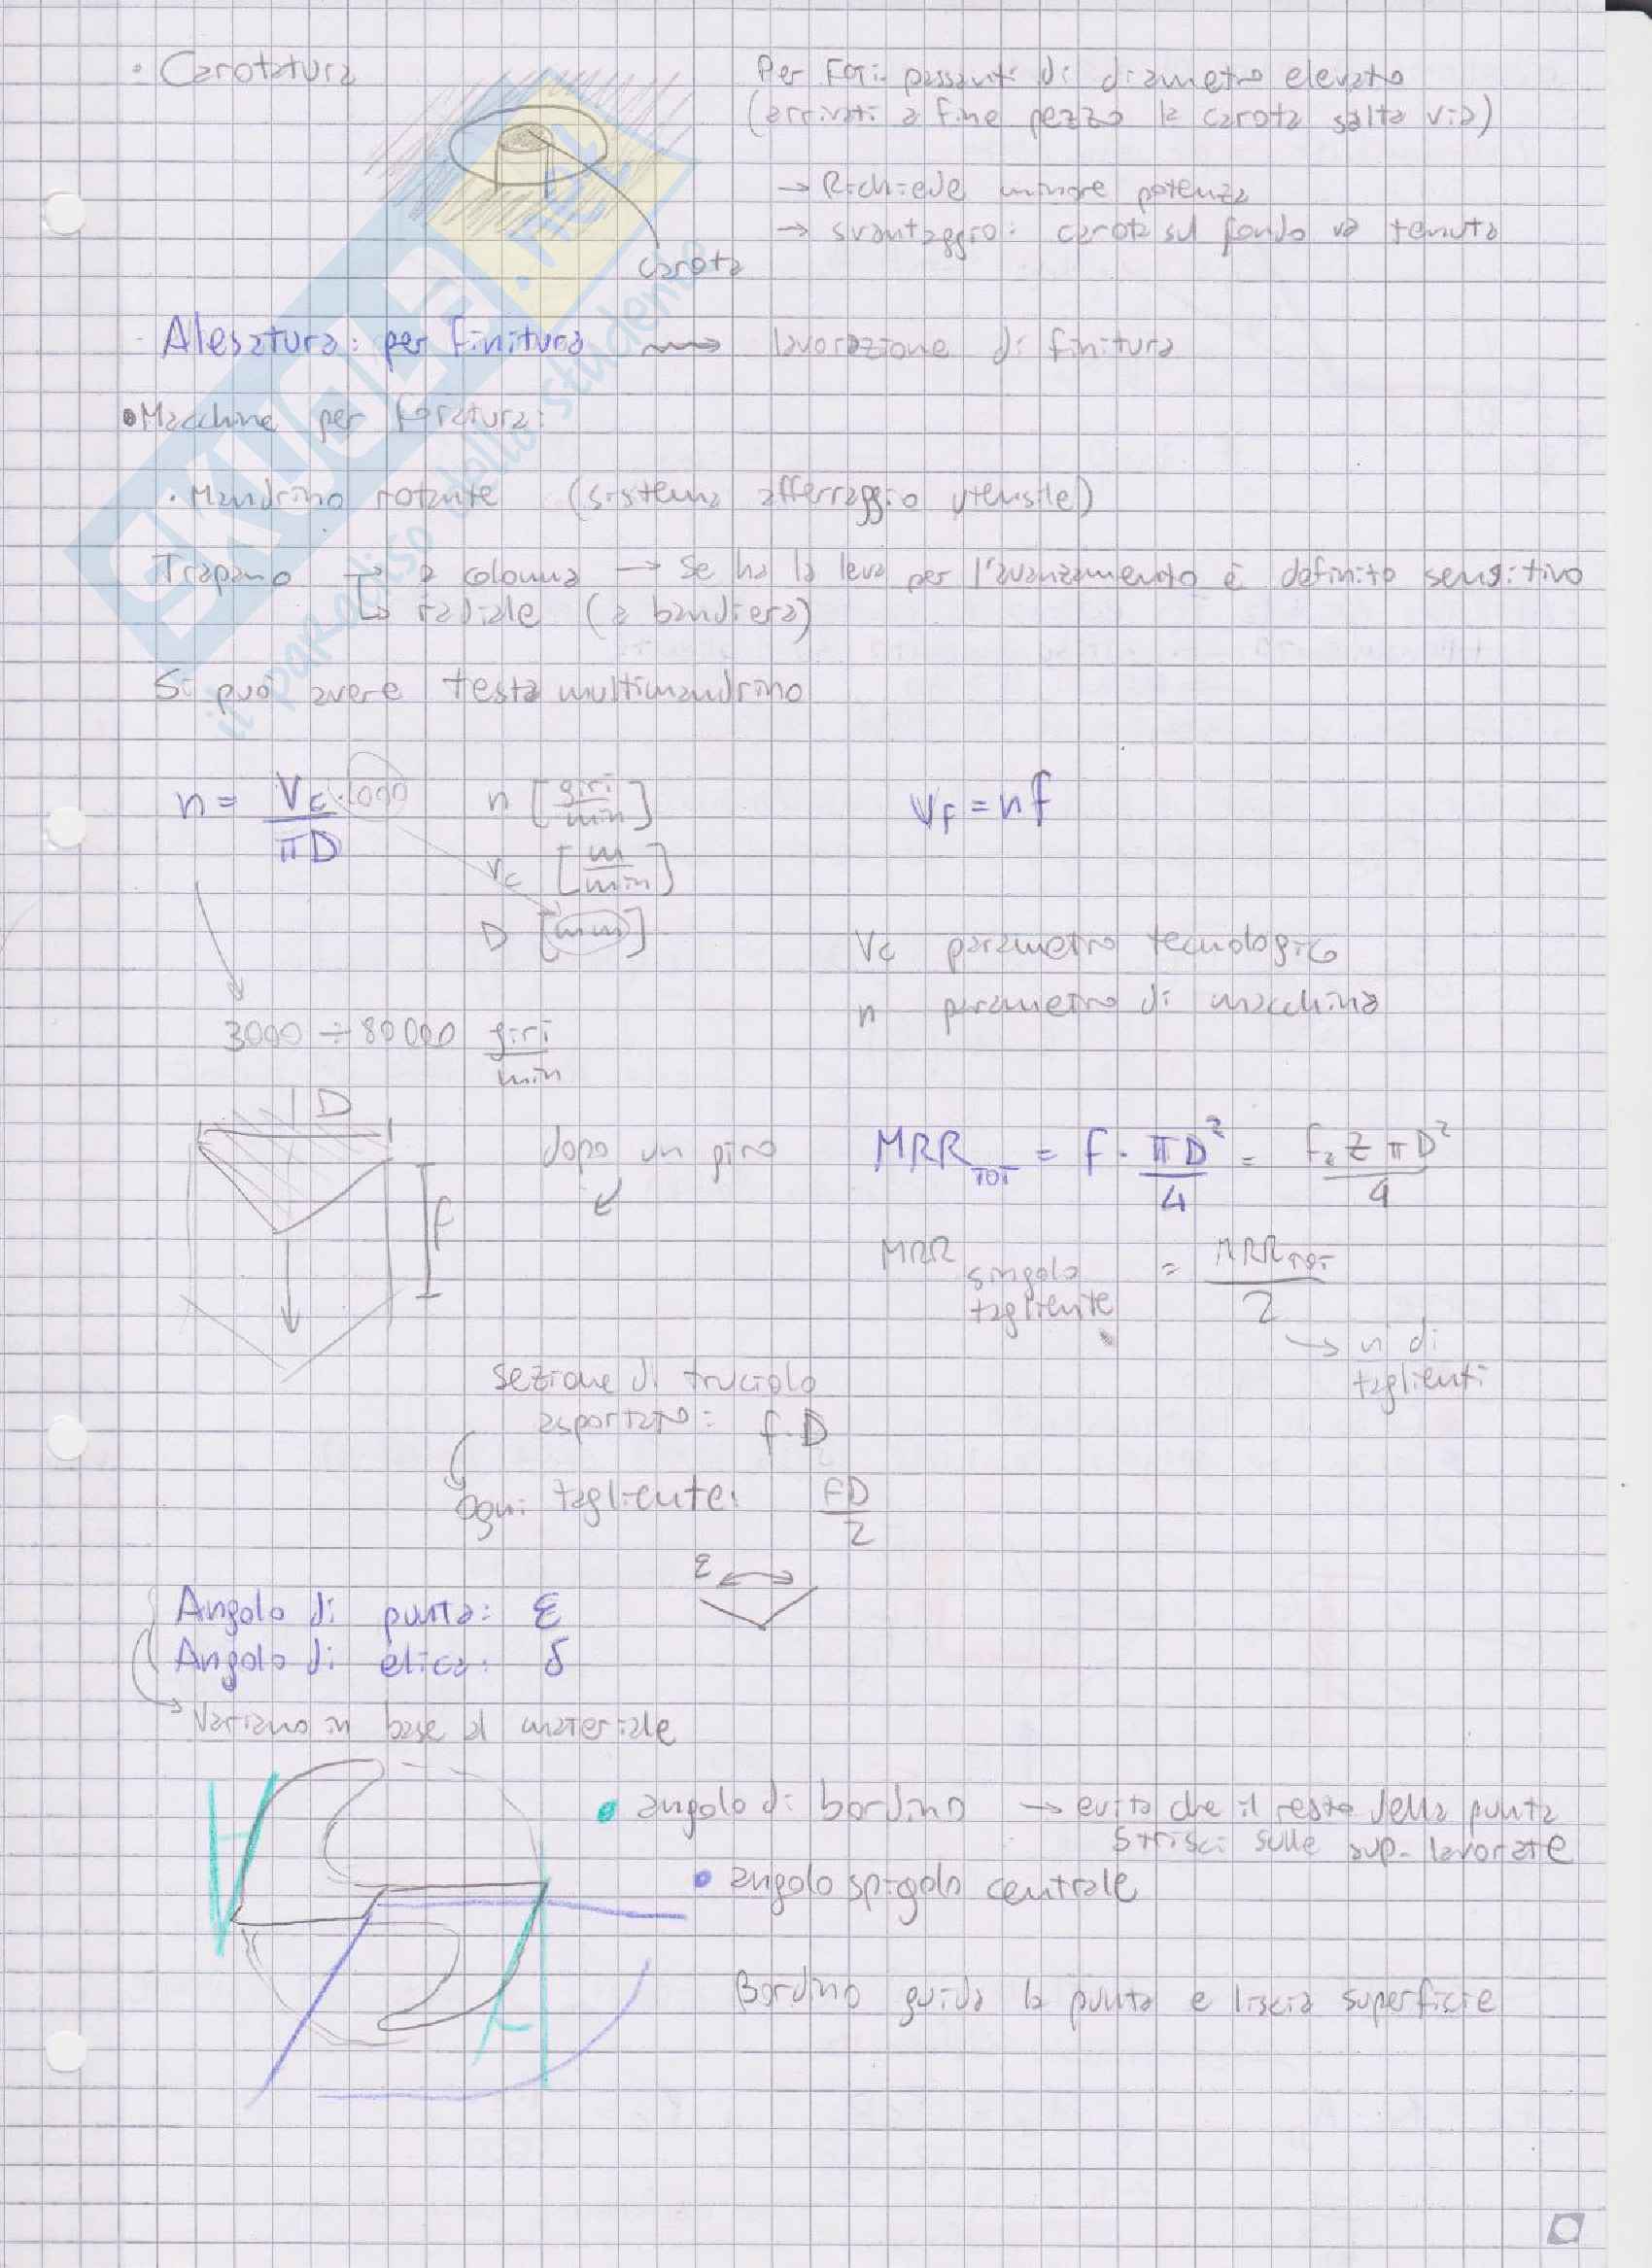 · Carotatura
Per Fori passanti di diametro elevato
(arrivati a fine pezzo la carota salta via)
→ Richiede minore potenza
→ svantaggio: carota sul fondo va tenuta
carota
· Alesatura: per finitura ⟿ lavorazione di finitura
• Macchine per foratura:
· Mandrino rotante (sistema afferraggio utensile)
Trapano ↳ a colonna → Se ha la leva per l'avanzamento è definito sensitivo
↳ radiale (a bandiera)
Si può avere testa multimandrino
n = Vc·1000 / πD
n [giri/min]
VF = nf
vc [m/min]
D [mm]
Vc parametro tecnologico
n parametro di macchina
3000 ÷ 80000 giri/min
D
f
dopo un giro
MRR TOT = f · πD²/4 = fz z πD²/4
MRR singolo tagliente = MRR TOT / 2
→ n di taglienti
sezione di truciolo
asportato: f·D
ogni tagliente: fD/2
ε
Angolo di punta: ε
Angolo di elica: δ
Variano in base al materiale
• angolo di bordino → evita che il resto della punta
strisci sulle sup. lavorate
• angolo spigolo centrale
Bordino guida la punta e liscia superficie
SKUOLA.net
il paradiso dello studente